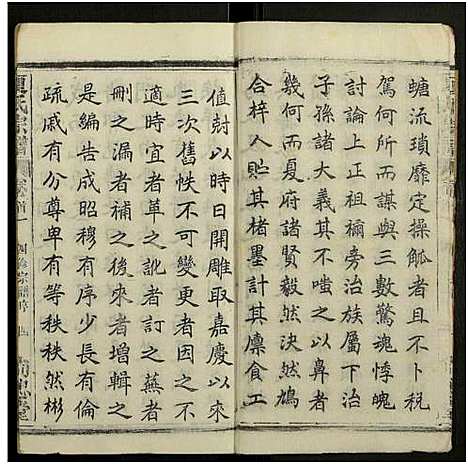 螗流瑣靡定操觚者且不卜稅
駕何所而謀與三數驚魂悸魄
討論上正祖禰旁治族属下治
子孫諸大義其不嗤以鼻者
幾何而夏府諸賢毅然決然鳩
合梓人貼其楮墨計其廪食工
值尅以時日開雕取嘉慶以來
三次舊帙不可變更者仍之不
適時宜者革之訛者訂之蕪者
刪之漏者補之後來者增輯之
是編告成昭穆有序少長有倫
疏戚有分尊卑有等秩秩然彬
夏氏宗譜